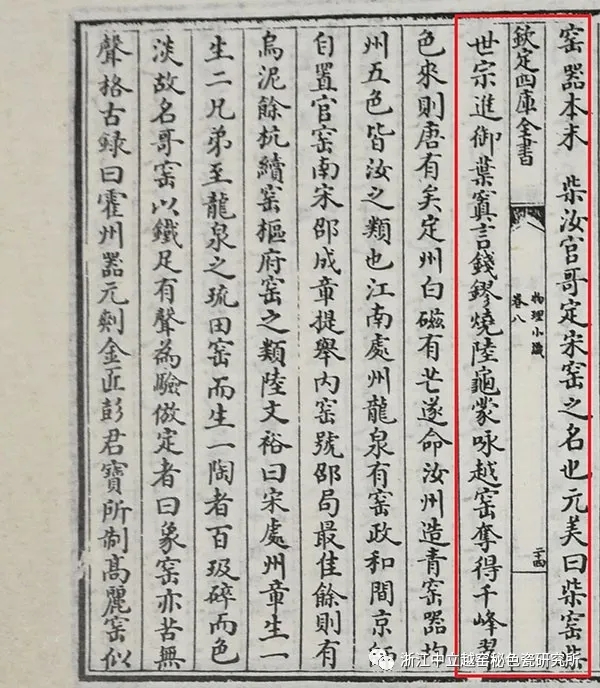 窑器本末　柴汝官哥定宋窑之名也元美曰柴窑柴
欽定四庫全書
物理小識
卷八
二十四
世宗進御葉寘言錢鏐燒陸龜蒙咏越窑奪得千峰翠
色來則唐有矣定州白磁有芒遂命汝州造青窑器均
州五色皆汝之類也江南處州龍泉有窑政和間京師
自置官窑南宋邵成章提舉内窑號邵局最佳餘則有
烏泥餘杭續窑樞府窑之類陸文裕曰宋處州章生一
生二兄弟至龍泉之琉田窑而生一陶者百圾碎而色
淡故名哥窑以鐵足有聲為驗倣定者曰象窑亦苦無
聲格古録曰霍州器元剏金匠彭君寶所制高麗窑似
浙江中立越窑秘色瓷研究所